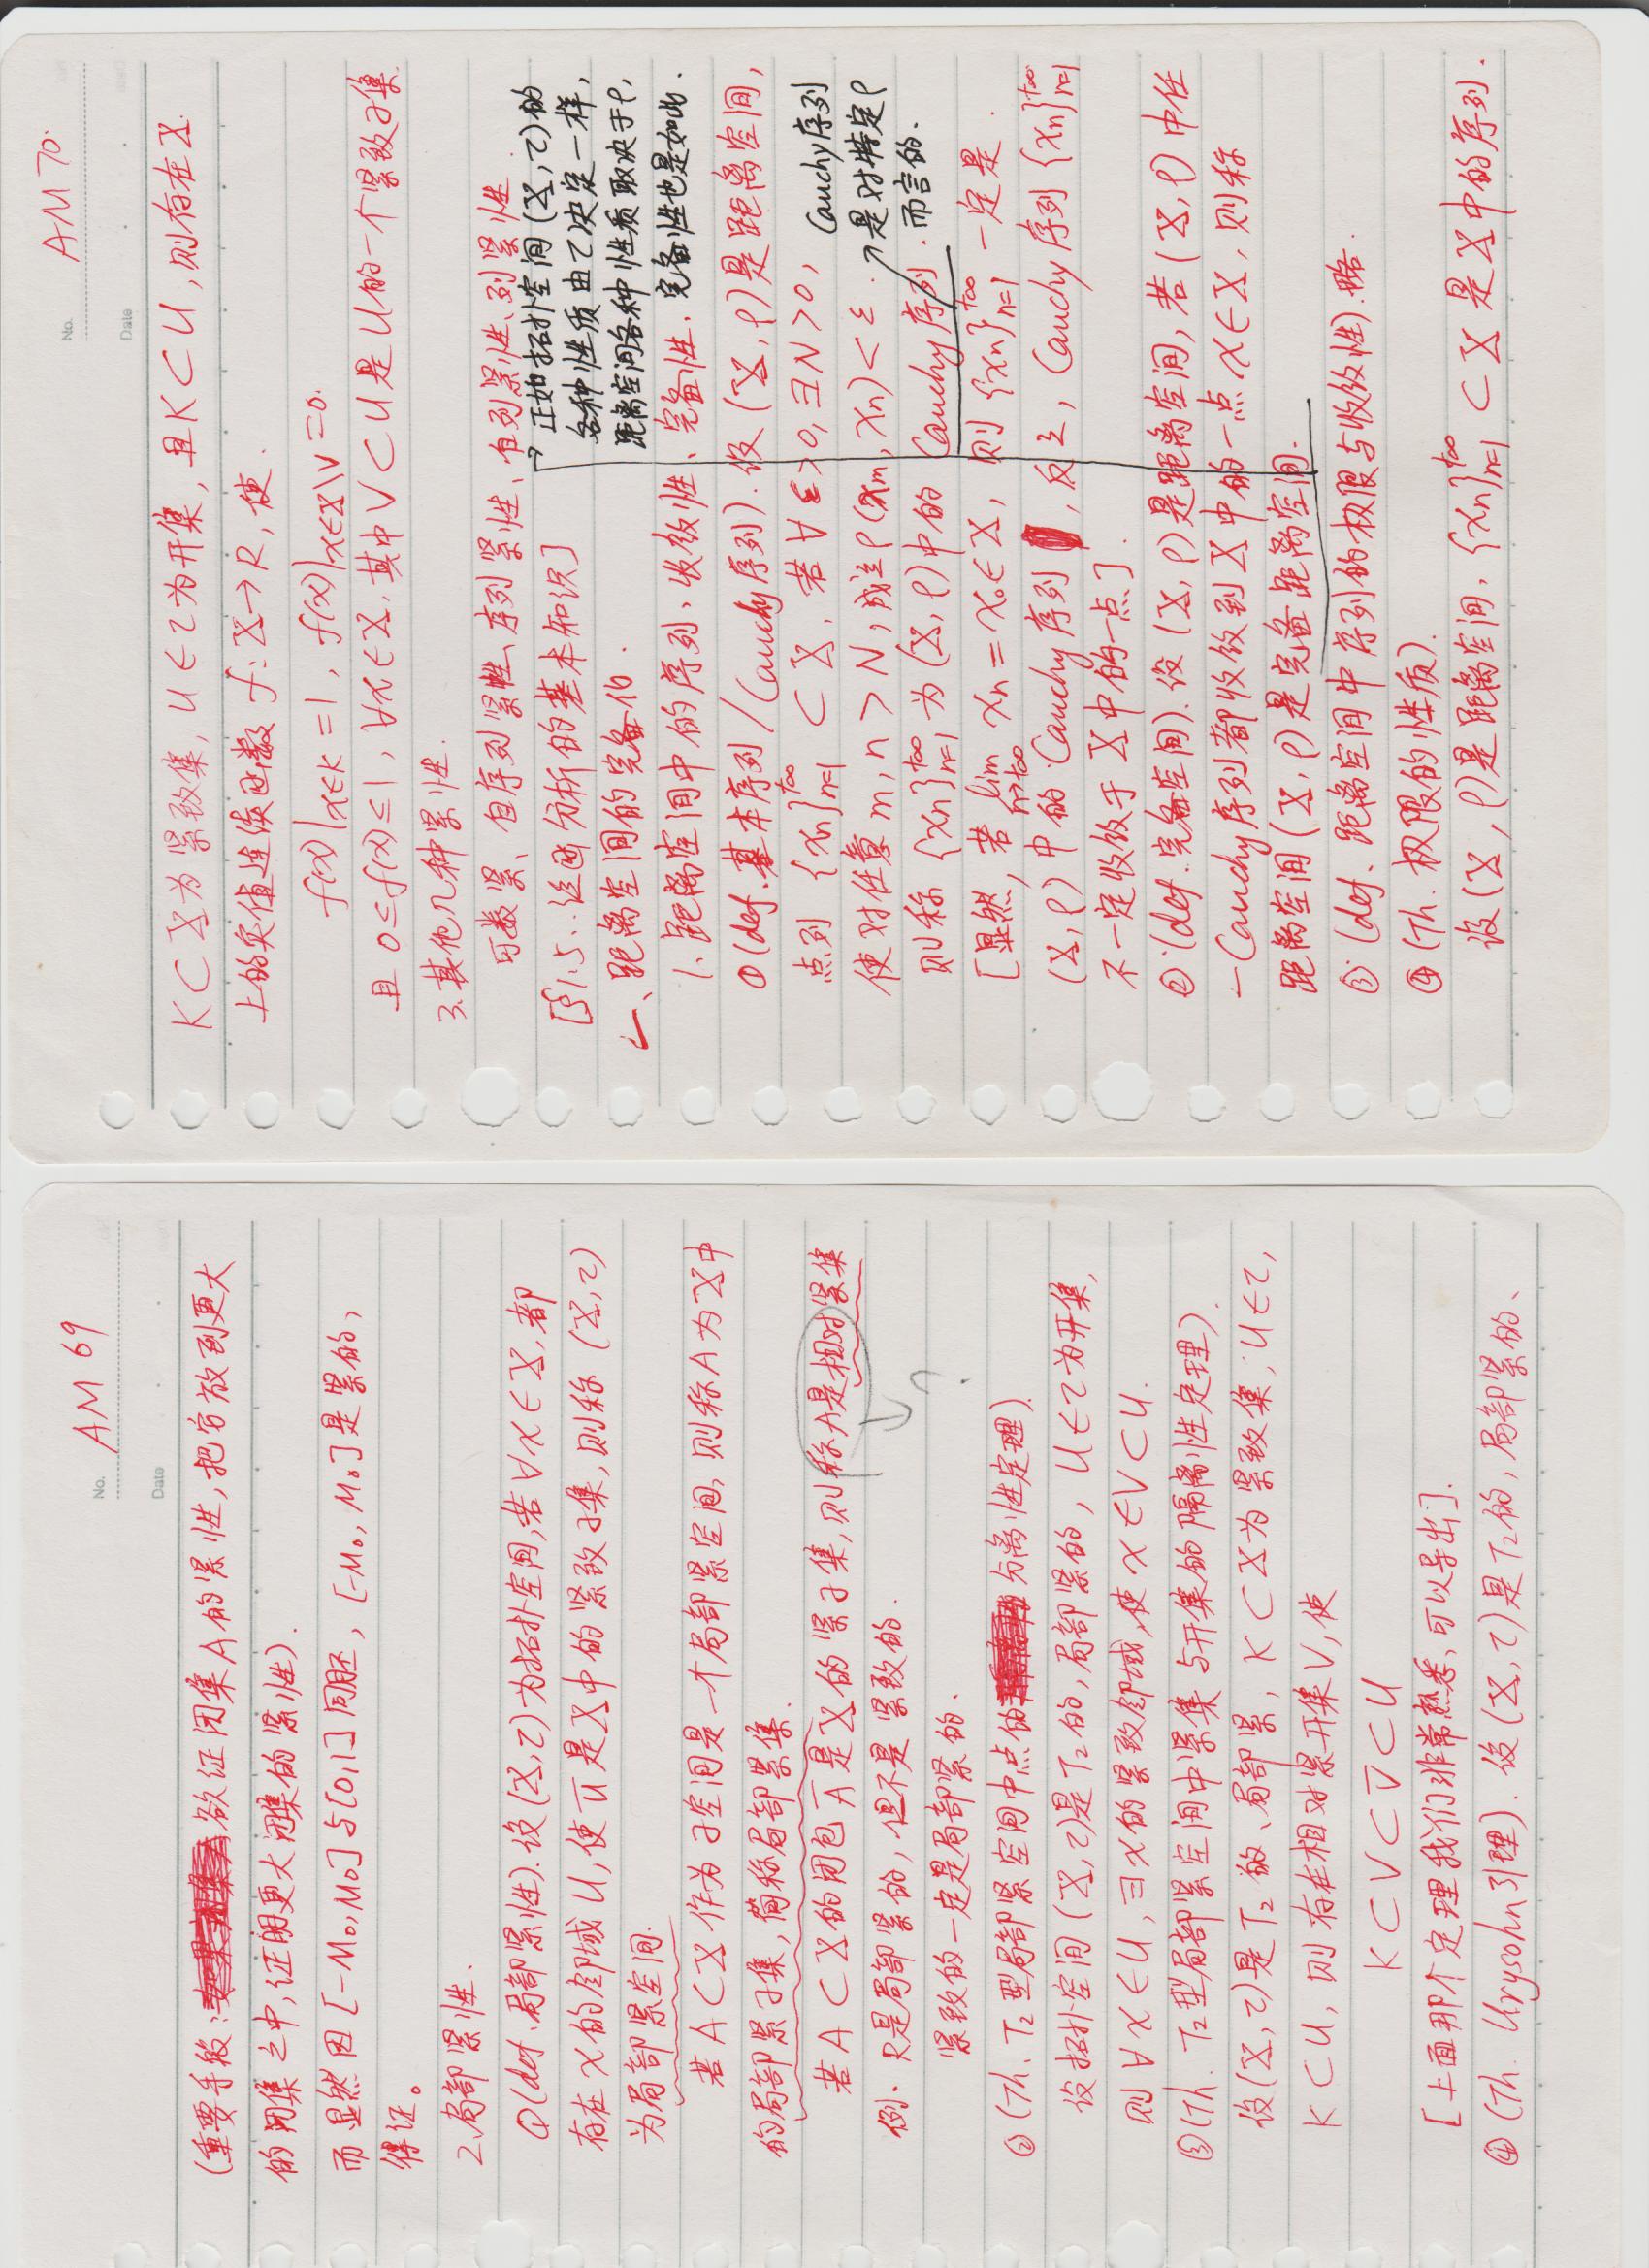 No. AM 69
Date
(重要手段: 欲证闭集A的紧性,把它放到更大
的闭集之中,证明更大闭集的紧性).
而显然因[-M₀,M₀]与[0,1]同胚, [-M₀, M₀]是紧的,
得证。
2.局部紧性.
①(def.局部紧性).设(X,τ)为拓扑空间,若∀x∈X,都
存在x的邻域U,使U̅是X中的紧致子集,则称(X,τ)
为局部紧空间.
若A⊂X作为子空间是一个局部紧空间,则称A为X中
的局部紧子集,简称局部紧集.
若A⊂X的闭包A̅是X的紧子集,则称A是相对紧集
?
例. R是局部紧的,但不是紧致的.
紧致的一定是局部紧的.
②(Th. T₂型局部紧空间中点的分离性定理).
设拓扑空间(X,τ)是T₂的,局部紧的, U∈τ为开集,
则∀x∈U,∃x的紧致邻域,使x∈V⊂U.
③(Th. T₂型局部紧空间中紧集与开集的隔离性定理).
设(X,τ)是T₂的、局部紧, K⊂X为紧致集, U∈τ,
K⊂U, 则存在相对紧开集V,使
K⊂V⊂V̅⊂U
[上面那个定理我们非常熟悉,可以导出].
④(Th. Urysohn引理). 设(X,τ)是T₂的,局部紧的、
No. AM 70.
Date
K⊂X为紧致集, U∈τ为开集, 且K⊂U, 则存在X
上的实值连续函数 f: X→R, 使.
f(x)|x∈K =1, f(x)|x∈X\V =0.
且 0≤f(x)≤1, ∀x∈X. 其中V⊂U是U的一个紧致子集
3.其他几种紧性.
可数紧、自序列紧性、序列紧性、自列紧性、列紧性.
[§1.5. 泛函分析的基本知识]
正如拓扑空间(X,τ)的
各种性质由τ决定一样,
距离空间各种性质取决于ρ,
完备性也是如此.
一、距离空间的完备化.
1. 距离空间中的序列、收敛性、完备性.
①(def.基本序列/Cauchy序列). 设(X,ρ)是距离空间,
点列 {xn}ₙ₌₁^{+∞} ⊂ X, 若∀ε>0,∃N>0,
使对任意m,n>N,成立ρ(xm,xn)<ε.
则称{xn}ₙ₌₁^{+∞}为(X,ρ)中的Cauchy序列.
Cauchy序列
是对特定ρ
而言的.
[显然,若 lim_{n→+∞} xn=x₀∈X, 则{xn}ₙ₌₁^{+∞}一定是.
(X,ρ)中的Cauchy序列, 反之, Cauchy序列{xn}ₙ₌₁^{+∞}
不一定收敛于X中的一点].
②(def.完备空间). 设(X,ρ)是距离空间, 若(X,ρ)中任
一Cauchy序列都收敛到X中的一点x∈X, 则称
距离空间(X,ρ)是完备距离空间.
③(def. 距离空间中序列的极限与收敛性).略.
④(Th. 极限的性质).
设(X,ρ)是距离空间, {xn}ₙ₌₁^{+∞}⊂X是X中的序列.